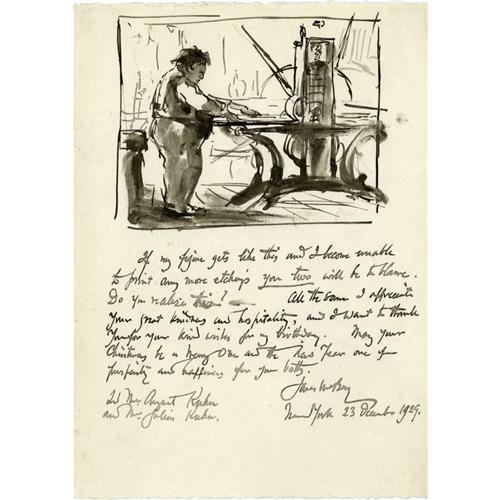 If my figure gets like this and I become unable
to print any more etchings you two will be to blame.
Do you realise this? All the same I appreciate
your great kindness and hospitality, and I want to thank
you for your kind wishes for my birthday. May your
Christmas be a Merry One and the New Year one of
prosperity and happiness for you both.
James McBey
To Mrs August Kuhn
and Mr Julius Kuhn.
New York 23 December 1929.